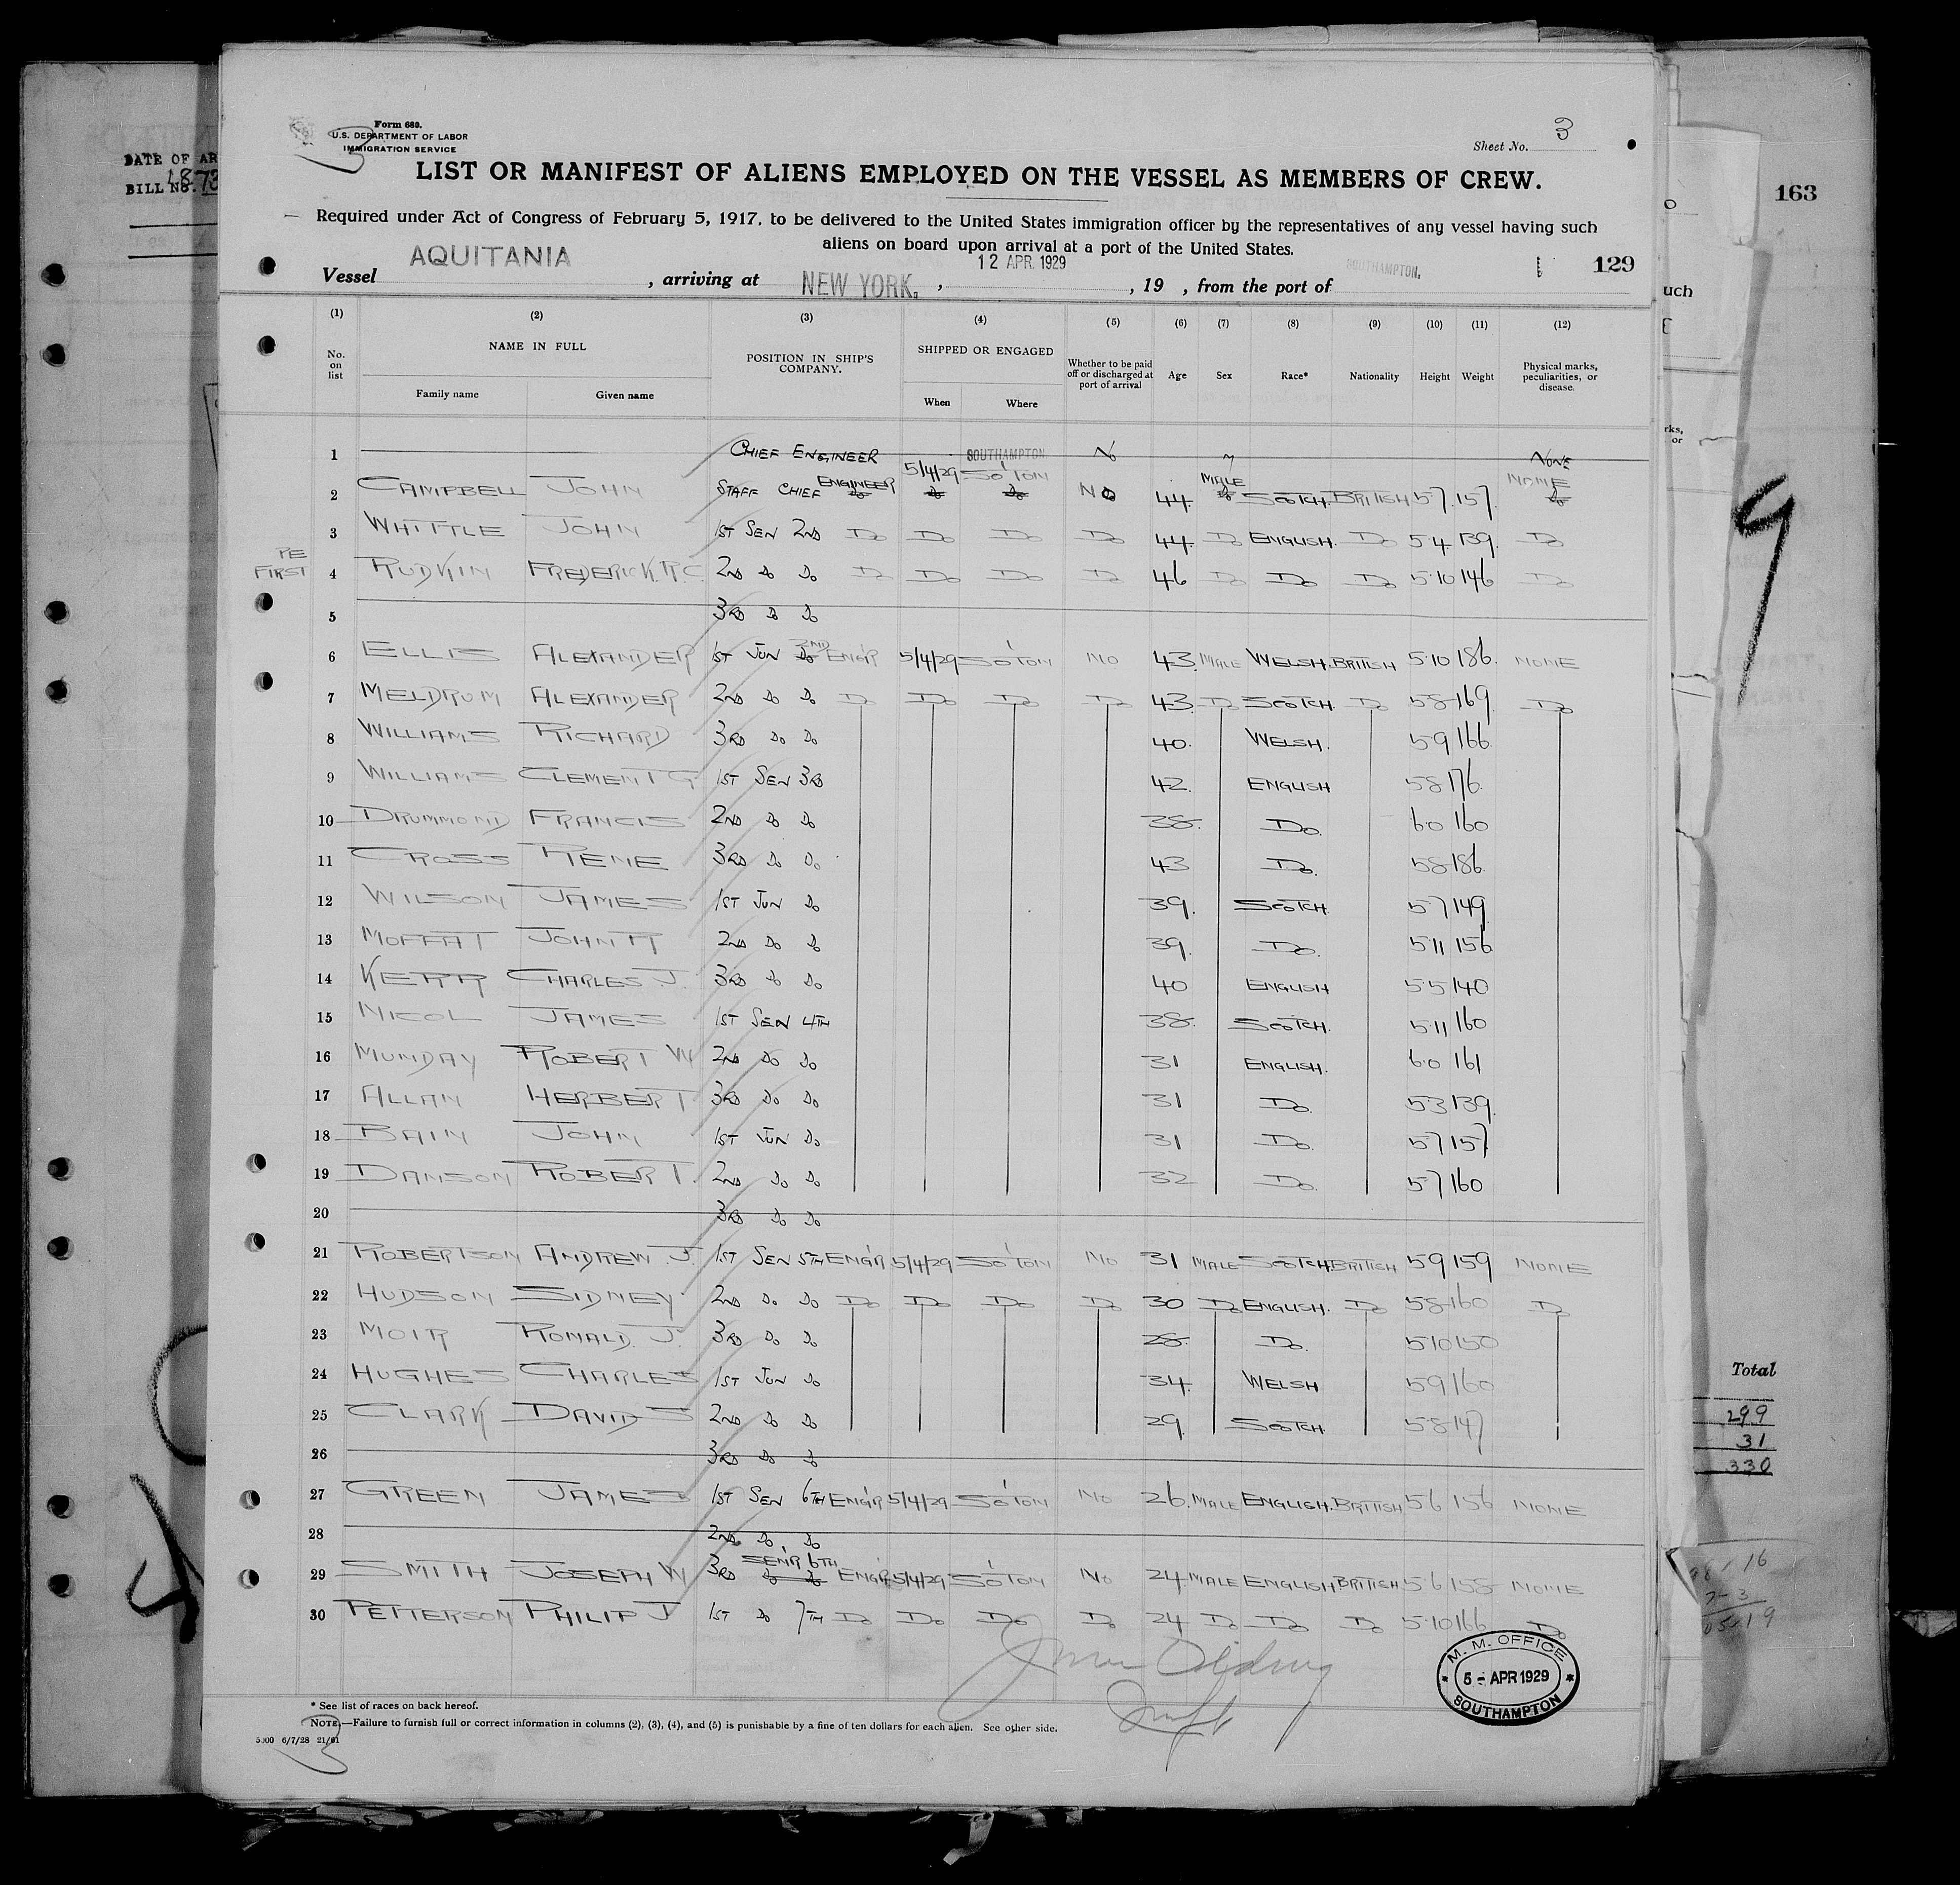 Form 680.
U.S. DEPARTMENT OF LABOR
IMMIGRATION SERVICE
3
Sheet No. 3
DATE OF AR
BILL No.
LIST OR MANIFEST OF ALIENS EMPLOYED ON THE VESSEL AS MEMBERS OF CREW.
163
Required under Act of Congress of February 5, 1917, to be delivered to the United States immigration officer by the representatives of any vessel having such
aliens on board upon arrival at a port of the United States.
Vessel AQUITANIA, arriving at NEW YORK, 12 APR. 1929, 19 , from the port of SOUTHAMPTON,
129
uch
(1) (2) (3) (4) (5) (6) (7) (8) (9) (10) (11) (12)
No. on list NAME IN FULL POSITION IN SHIP'S COMPANY. SHIPPED OR ENGAGED Whether to be paid off or discharged at port of arrival Age Sex Race* Nationality Height Weight Physical marks, peculiarities, or disease.
Family name Given name When Where
rks,
or
1 CHIEF ENGINEER SOUTHAMPTON No NONE
2 CAMPBELL JOHN STAFF CHIEF ENGINEER Do 5/4/29 Do SO'TON Do NO 44 MALE Do SCOTCH. BRITISH 5 7. 157. NONE Do
3 WHITTLE JOHN 1ST SEN 2ND Do Do Do Do 44. Do ENGLISH. Do 5 4 139. Do
PE
FIRST
4 RUDKIN FREDERICK.R.C 2ND Do Do Do Do Do Do 46 Do Do Do 5.10 146 Do
5 3RD Do Do
6 ELLIS ALEXANDER 1ST JUN 2ND Do ENG'R 5/4/29 SO'TON NO 43. MALE WELSH. BRITISH 5.10 186. NONE
7 MELDRUM ALEXANDER 2ND Do Do Do Do Do Do 43. Do SCOTCH Do 5 8 169. Do
8 WILLIAMS RICHARD 3RD Do Do 40. WELSH. 5 9 166.
9 WILLIAMS CLEMENT G 1ST SEN 3RD 42. ENGLISH 5 8 176.
10 DRUMMOND FRANCIS 2ND Do Do 38. Do. 6.0 160
11 CROSS RENE 3RD Do Do 43 Do. 5 8 186.
12 WILSON JAMES 1ST JUN Do 39. SCOTCH. 5 7 149
13 MOFFAT JOHN R 2ND Do Do 39. Do. 5.11 156
14 KERR CHARLES J. 3RD Do Do 40 ENGLISH 5 5 140
15 NICOL JAMES 1ST SEN 4TH 38. SCOTCH. 5.11 160
16 MUNDAY ROBERT W 2ND Do Do 31 ENGLISH. 6.0 161
17 ALLAN HERBERT 3RD Do Do 31 Do. 5 3 139.
18 BAIN JOHN 1ST JUN Do 31 Do. 5 7 157.
19 DAMSON ROBERT. 2ND Do Do 32 Do. 5 7 160
20 3RD Do Do
21 ROBERTSON ANDREW. J. 1ST SEN 5TH ENG'R 5/4/29 SO'TON NO 31 MALE SCOTCH. BRITISH 5 9 159 NONE
22 HUDSON SIDNEY 2ND Do. Do Do Do Do Do 30 Do ENGLISH. Do 5 8 160 Do
23 MOIR RONALD. J. 3RD Do Do 28. Do. 5 10 150
24 HUGHES CHARLES 1ST JUN Do 34. WELSH 5 9 160
25 CLARK DAVID S 2ND Do Do 29. SCOTCH. 5 8 147
26 3RD Do Do
27 GREEN JAMES 1ST SEN 6TH ENG'R 5/4/29 SO'TON NO 26. MALE ENGLISH. BRITISH 5 6 156 NONE
28 2ND Do, Do
29 SMITH JOSEPH W 3RD SEN'R 6TH Do Do ENG'R 5/4/29 SO'TON NO 24 MALE ENGLISH BRITISH 5 6 158 NONE
30 PETTERSON PHILIP J 1ST Do 7TH Do Do Do Do 24 Do Do Do 5.10 166 Do
Total
299
31
330
M. M. OFFICE
5 - APR 1929
SOUTHAMPTON
* See list of races on back hereof.
NOTE.—Failure to furnish full or correct information in columns (2), (3), (4), and (5) is punishable by a fine of ten dollars for each alien. See other side.
5000 6/7/28 21/61
3